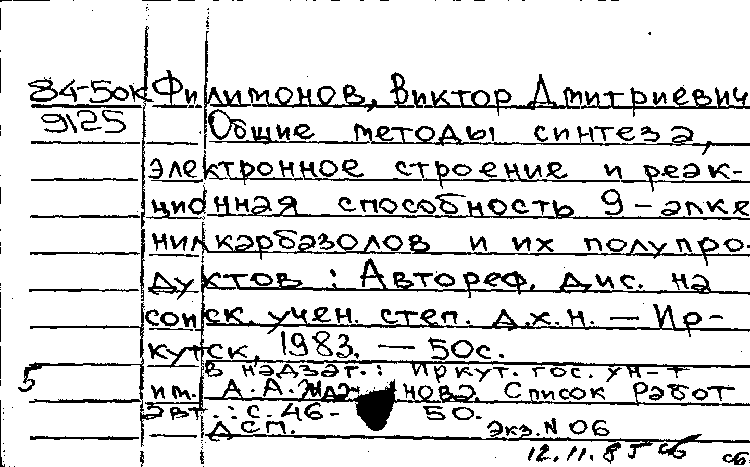 84-50к Филимонов, Виктор Дмитриевич
9125 Общие методы синтеза,
электронное строение и реак-
ционная способность 9-алке
нилкарбазолов и их полупро-
дуктов : Автореф. дис. на
соиск. учен. степ. д.х.н. — Ир-
кутск, 1983. — 50с.
В надзаг.: Иркут. гос. ун-т
5 им. А.А. Жданова. Список работ
авт.: с. 46-50.
ДСП. Экз. N 06
12.11.85